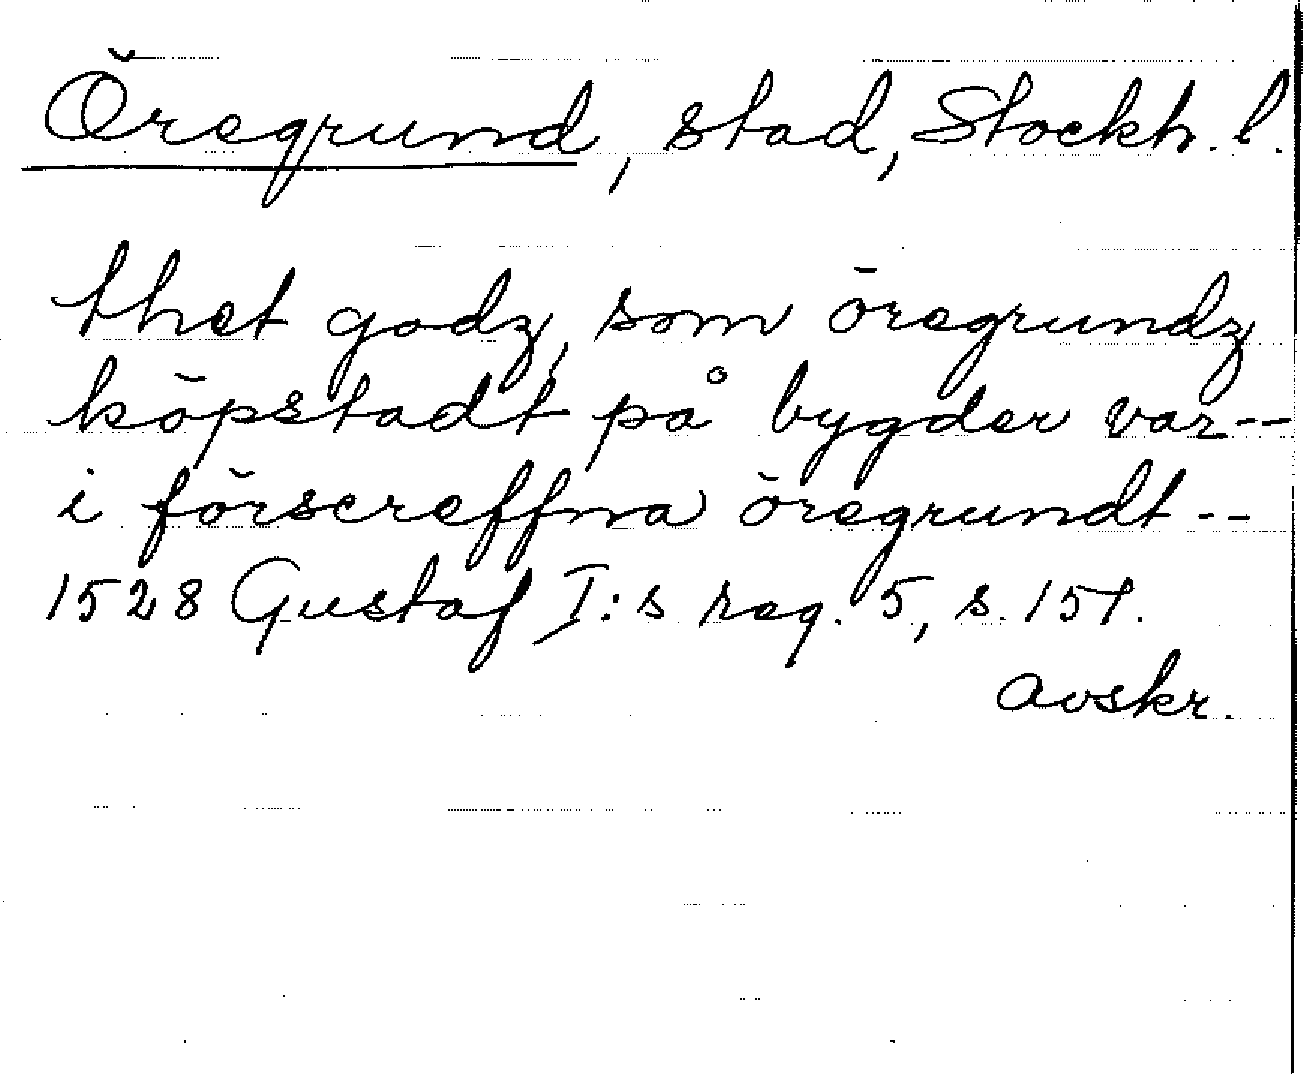 Öregrund, stad, Stockh. l.
thet godz, som öregrundz
köpstadt på bygder var--
i förscreffna öregrundt --
1528 Gustaf I:s reg. 5, s. 151.
avskr.